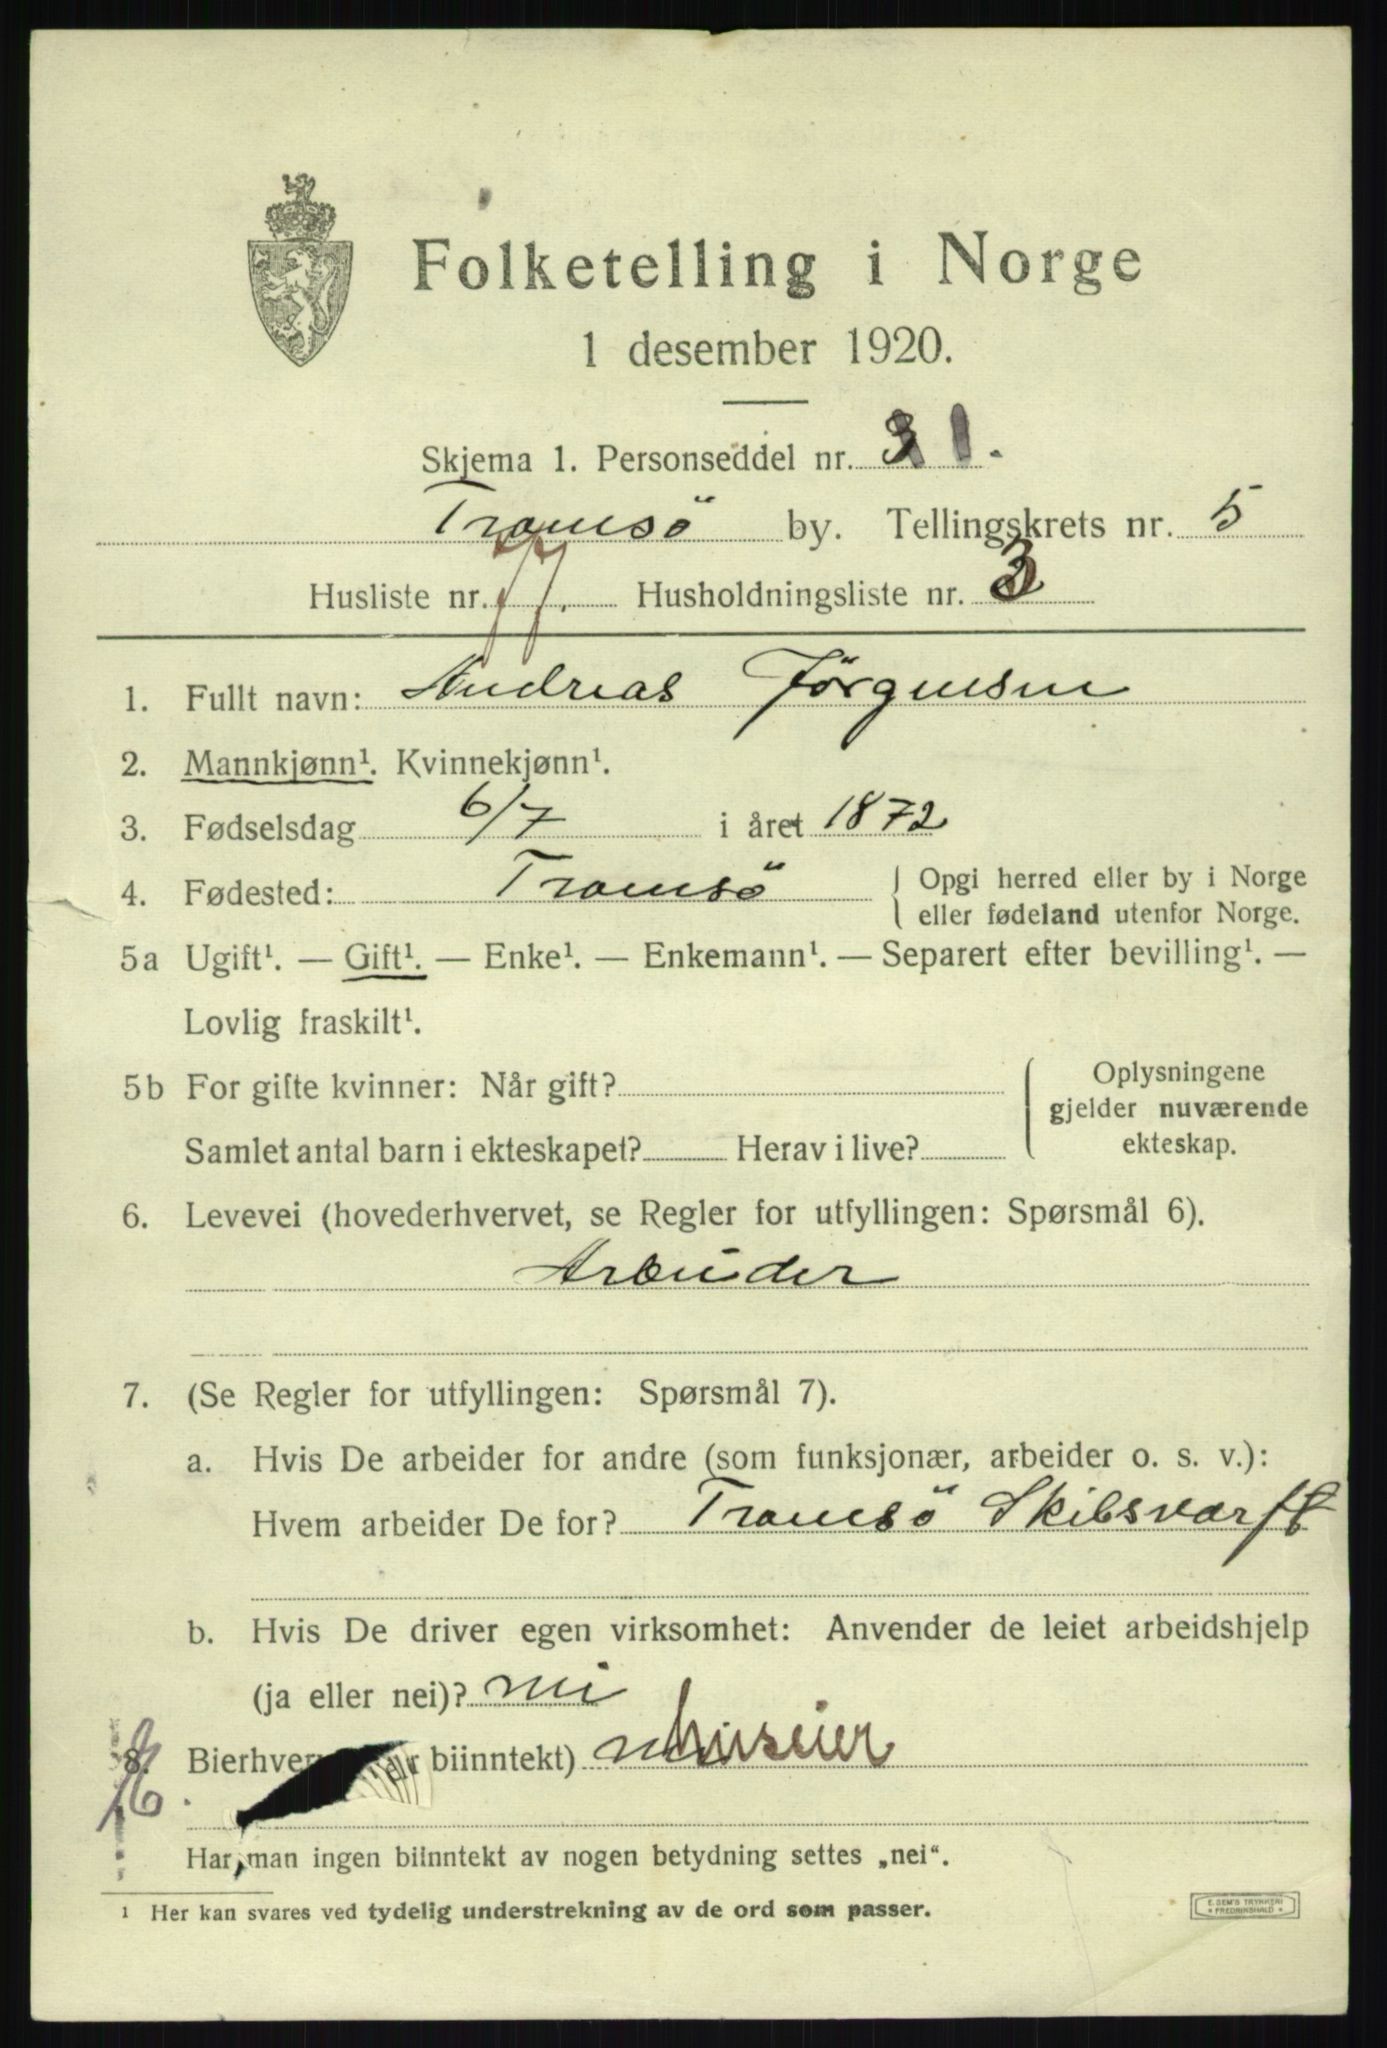 Folketelling i Norge
1 desember 1920.
Skjema 1. Personseddel nr. 1.
Tromsö by. Tellingskrets nr. 5
Husliste nr. 77. Husholdningsliste nr. 3
1. Fullt navn: Andreas Jörgensen
2. Mannkjønn¹. Kvinnekjønn¹.
3. Fødselsdag 6/7 i året 1872
4. Fødested: Tromsö { Opgi herred eller by i Norge
eller fødeland utenfor Norge.
5a Ugift¹. — Gift¹. — Enke¹. — Enkemann¹. — Separert efter bevilling¹. —
Lovlig fraskilt¹.
5b For gifte kvinner: Når gift? { Oplysningene
gjelder nuværende
Samlet antal barn i ekteskapet? Herav i live? ekteskap.
6. Levevei (hovederhvervet, se Regler for utfyllingen: Spørsmål 6).
Arbeider
7. (Se Regler for utfyllingen: Spørsmål 7).
a. Hvis De arbeider for andre (som funksjonær, arbeider o. s. v.):
Hvem arbeider De for? Tromsö Skibsværft
b. Hvis De driver egen virksomhet: Anvender de leiet arbeidshjelp
(ja eller nei)? nei
8. Bierhver biinntekt) huseier
Har man ingen biinntekt av nogen betydning settes „nei“.
¹ Her kan svares ved tydelig understrekning av de ord som passer.
E. SEM'S TRYKKERI
* FREDRIKSHALD *